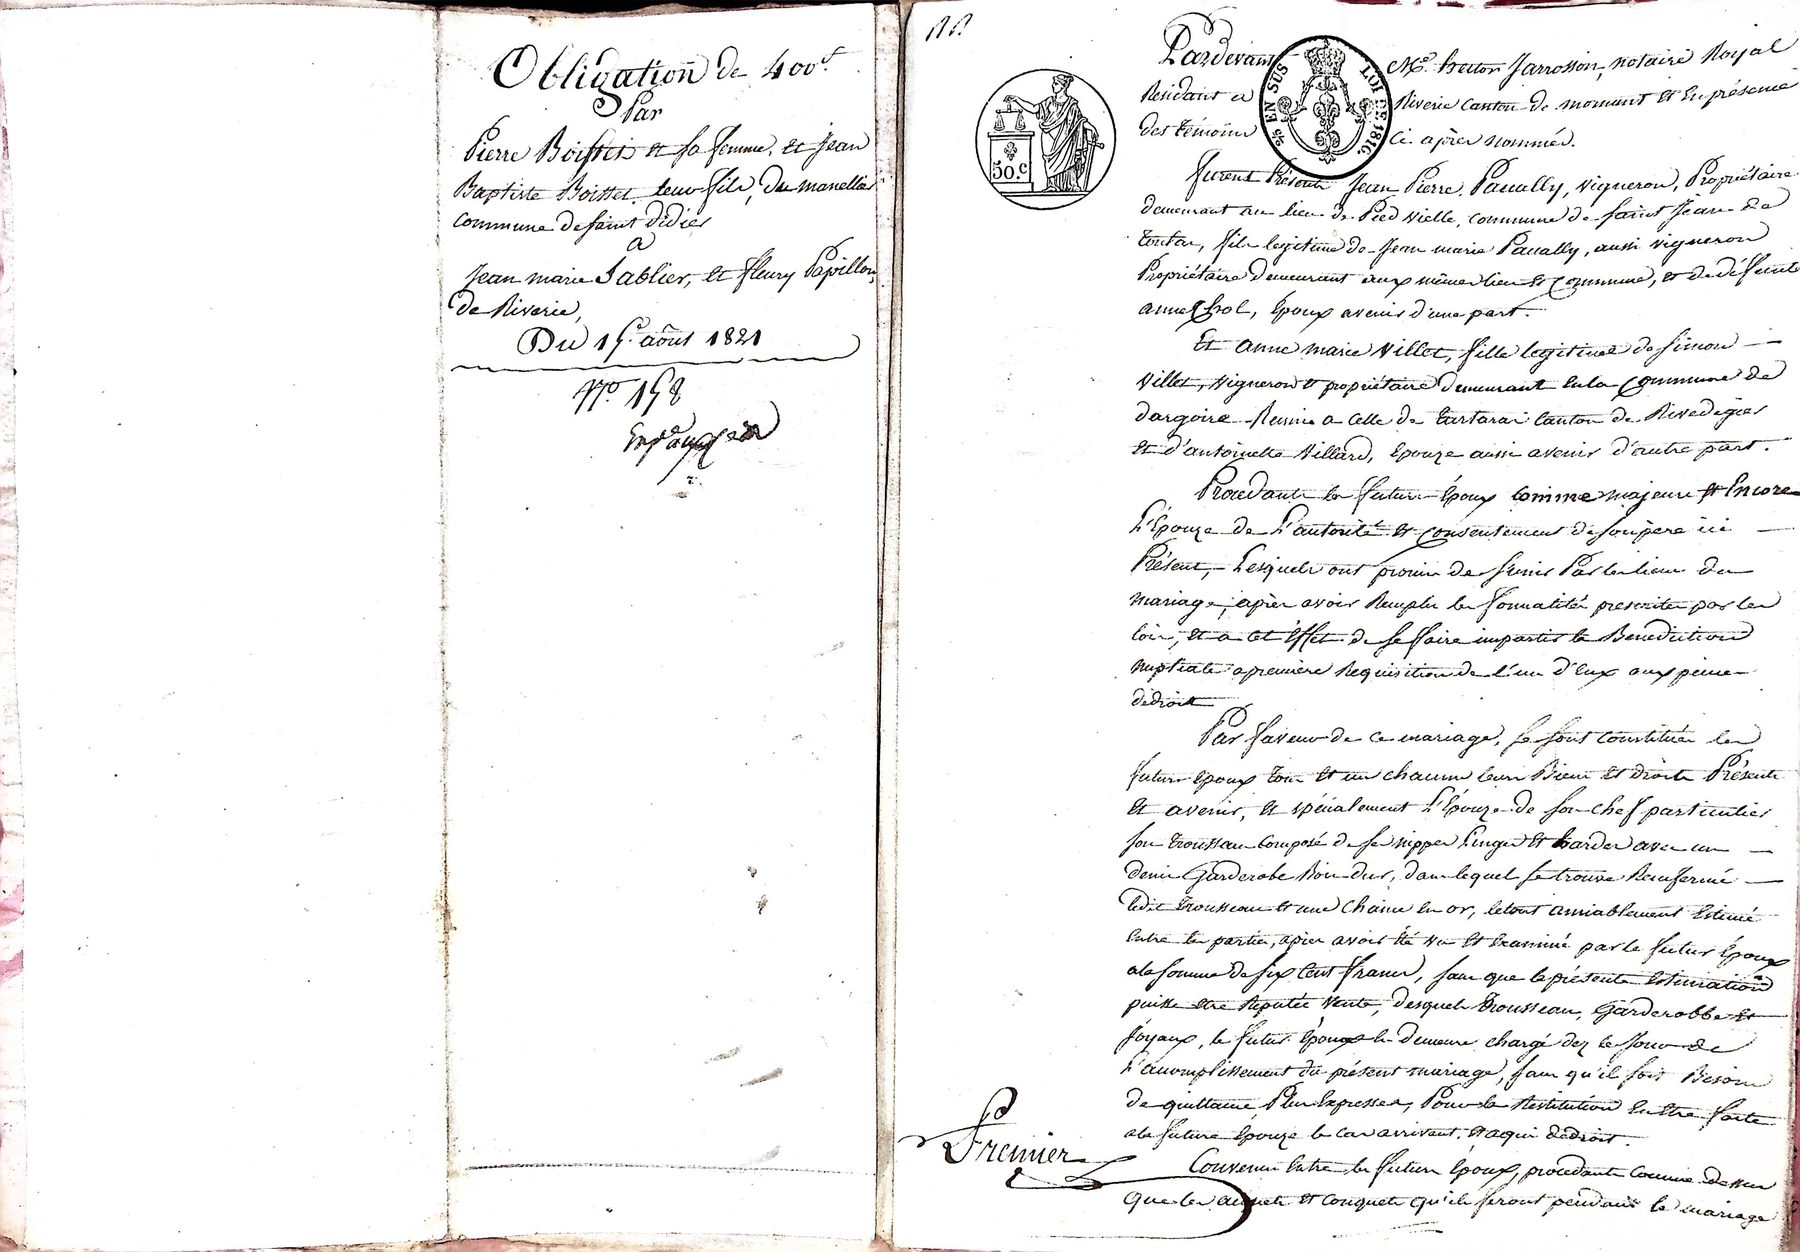 Obligation de 400f.
Par
Pierre Boisset et sa femme, et Jean
Baptiste Boisset leur fils, du
commune de saint didier
a
Jean marie Sablier, et fleury Papillon,
de Riverie,
Du 15 août 1821
No. 158
Pardevant Me. hector Jarrosson, notaire Royal
Residant a Riverie canton de mornant et en présence
des témoins ci après nommés.
25 EN SUS
LOI DE 1816.
50.c
furent Présents Jean Pierre Pacally, vigneron, Propriétaire
demeurant au lieu de Pied vielle, commune de saint Jean de
toulas, fils legitime de Jean marie Pacally, aussi vigneron
Propriétaire demeurant aux mêmes lieu et commune, et de défunte
anne Chol, Epoux avenir d'une part.
Et anne marie Villet, fille legitime de simon
Villet, vigneron et propriétaire demeurant en la commune de
dargoire Reunie a celle de tartaras canton de Rivedegier
et d'antoinette Villard, Epouze aussi avenir d'autre part.
Procedants les futurs Epoux comme majeurs et Encore
L'Epouze de L'autorité et consentement de son père ici
Présent, Lesquels ont promis de s'unir Par les liens du
mariage, après avoir Remplis les formalités prescrites par les
loix, et a cet effet de se faire impartir la Benediction
nuptiale a première Requisition de l'un d'Eux aux peines
de droit
Par faveur de ce mariage, se sont constitués les
futurs Epoux tous et un chacuns leurs Biens et droits Présents
et avenir, et spécialement L'Epouze de son chef particulier
son trousseau composé de ses nippes Linges et hardes avec un
demi Garderobe Bois dur, dans lequel se trouve Renfermé
ledit trousseau et une chaine en or, le tout amiablement estimé
entre les parties, après avoir été vu et examiné par le futur Epoux
a la somme de six cent francs, sans que la présente estimation
puisse etre Reputée vente, desquels trousseau, Garderobbe et
Joyaux, le futur Epoux demeure chargé dez le jour de
L'accomplissement du présent mariage, sans qu'il soit Besoin
de quittance Plus Expresse, Pour la Restitution en etre faite
a la future Epouze le cas arrivant, et a qui de droit.
Premier
Convenu entre les futurs Epoux, procedants comme dessus
que les acquets et conquets qu'ils feront pendant le mariage